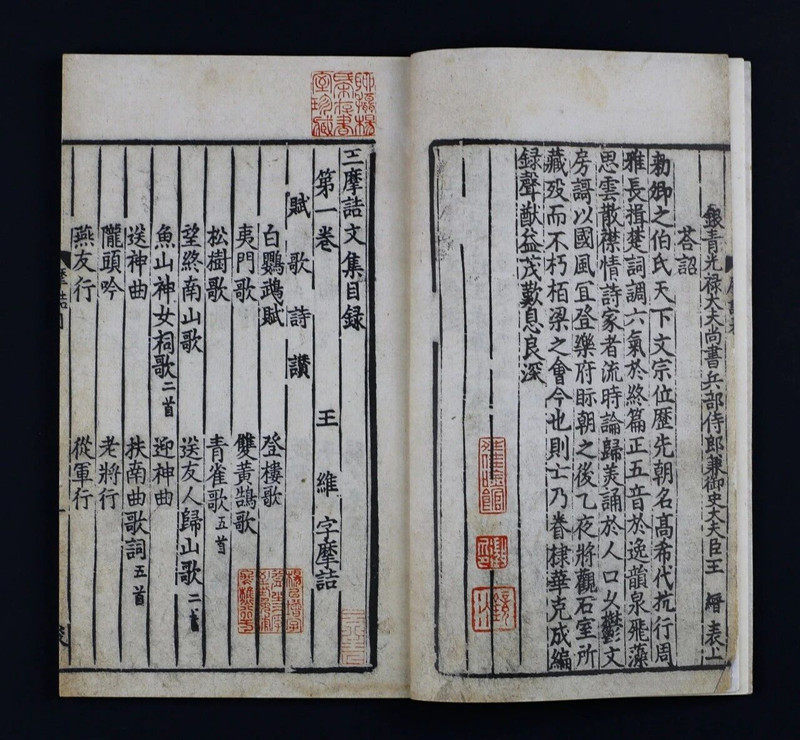 銀青光禄大夫尚書兵部侍郎兼御史大夫臣王 縉表上
荅詔
勑卿之伯氏天下文宗位歷先朝名髙希代抗行周
雅長揖楚詞調六氣於終篇正五音於逸韻泉飛藻
思雲散襟情詩家者流時論歸美誦於人口乆鬱文
房謌以國風冝登樂府旰朝之後乙夜將觀石室所
藏殁而不朽栢梁之會今也則亡乃眷棣華克成編
録聲猷益茂歎息良深
王摩詰文集目録
第一卷 王 維 字摩詰
賦 歌 詩 讚
白鸚鵡賦 登樓歌
夷門歌 雙黃鵠歌
松樹歌 青雀歌五首
望終南山歌 送友人歸山歌二首
魚山神女祠歌二首 迎神曲
送神曲 扶南曲歌詞五首
隴頭吟 老將行
燕友行 從軍行